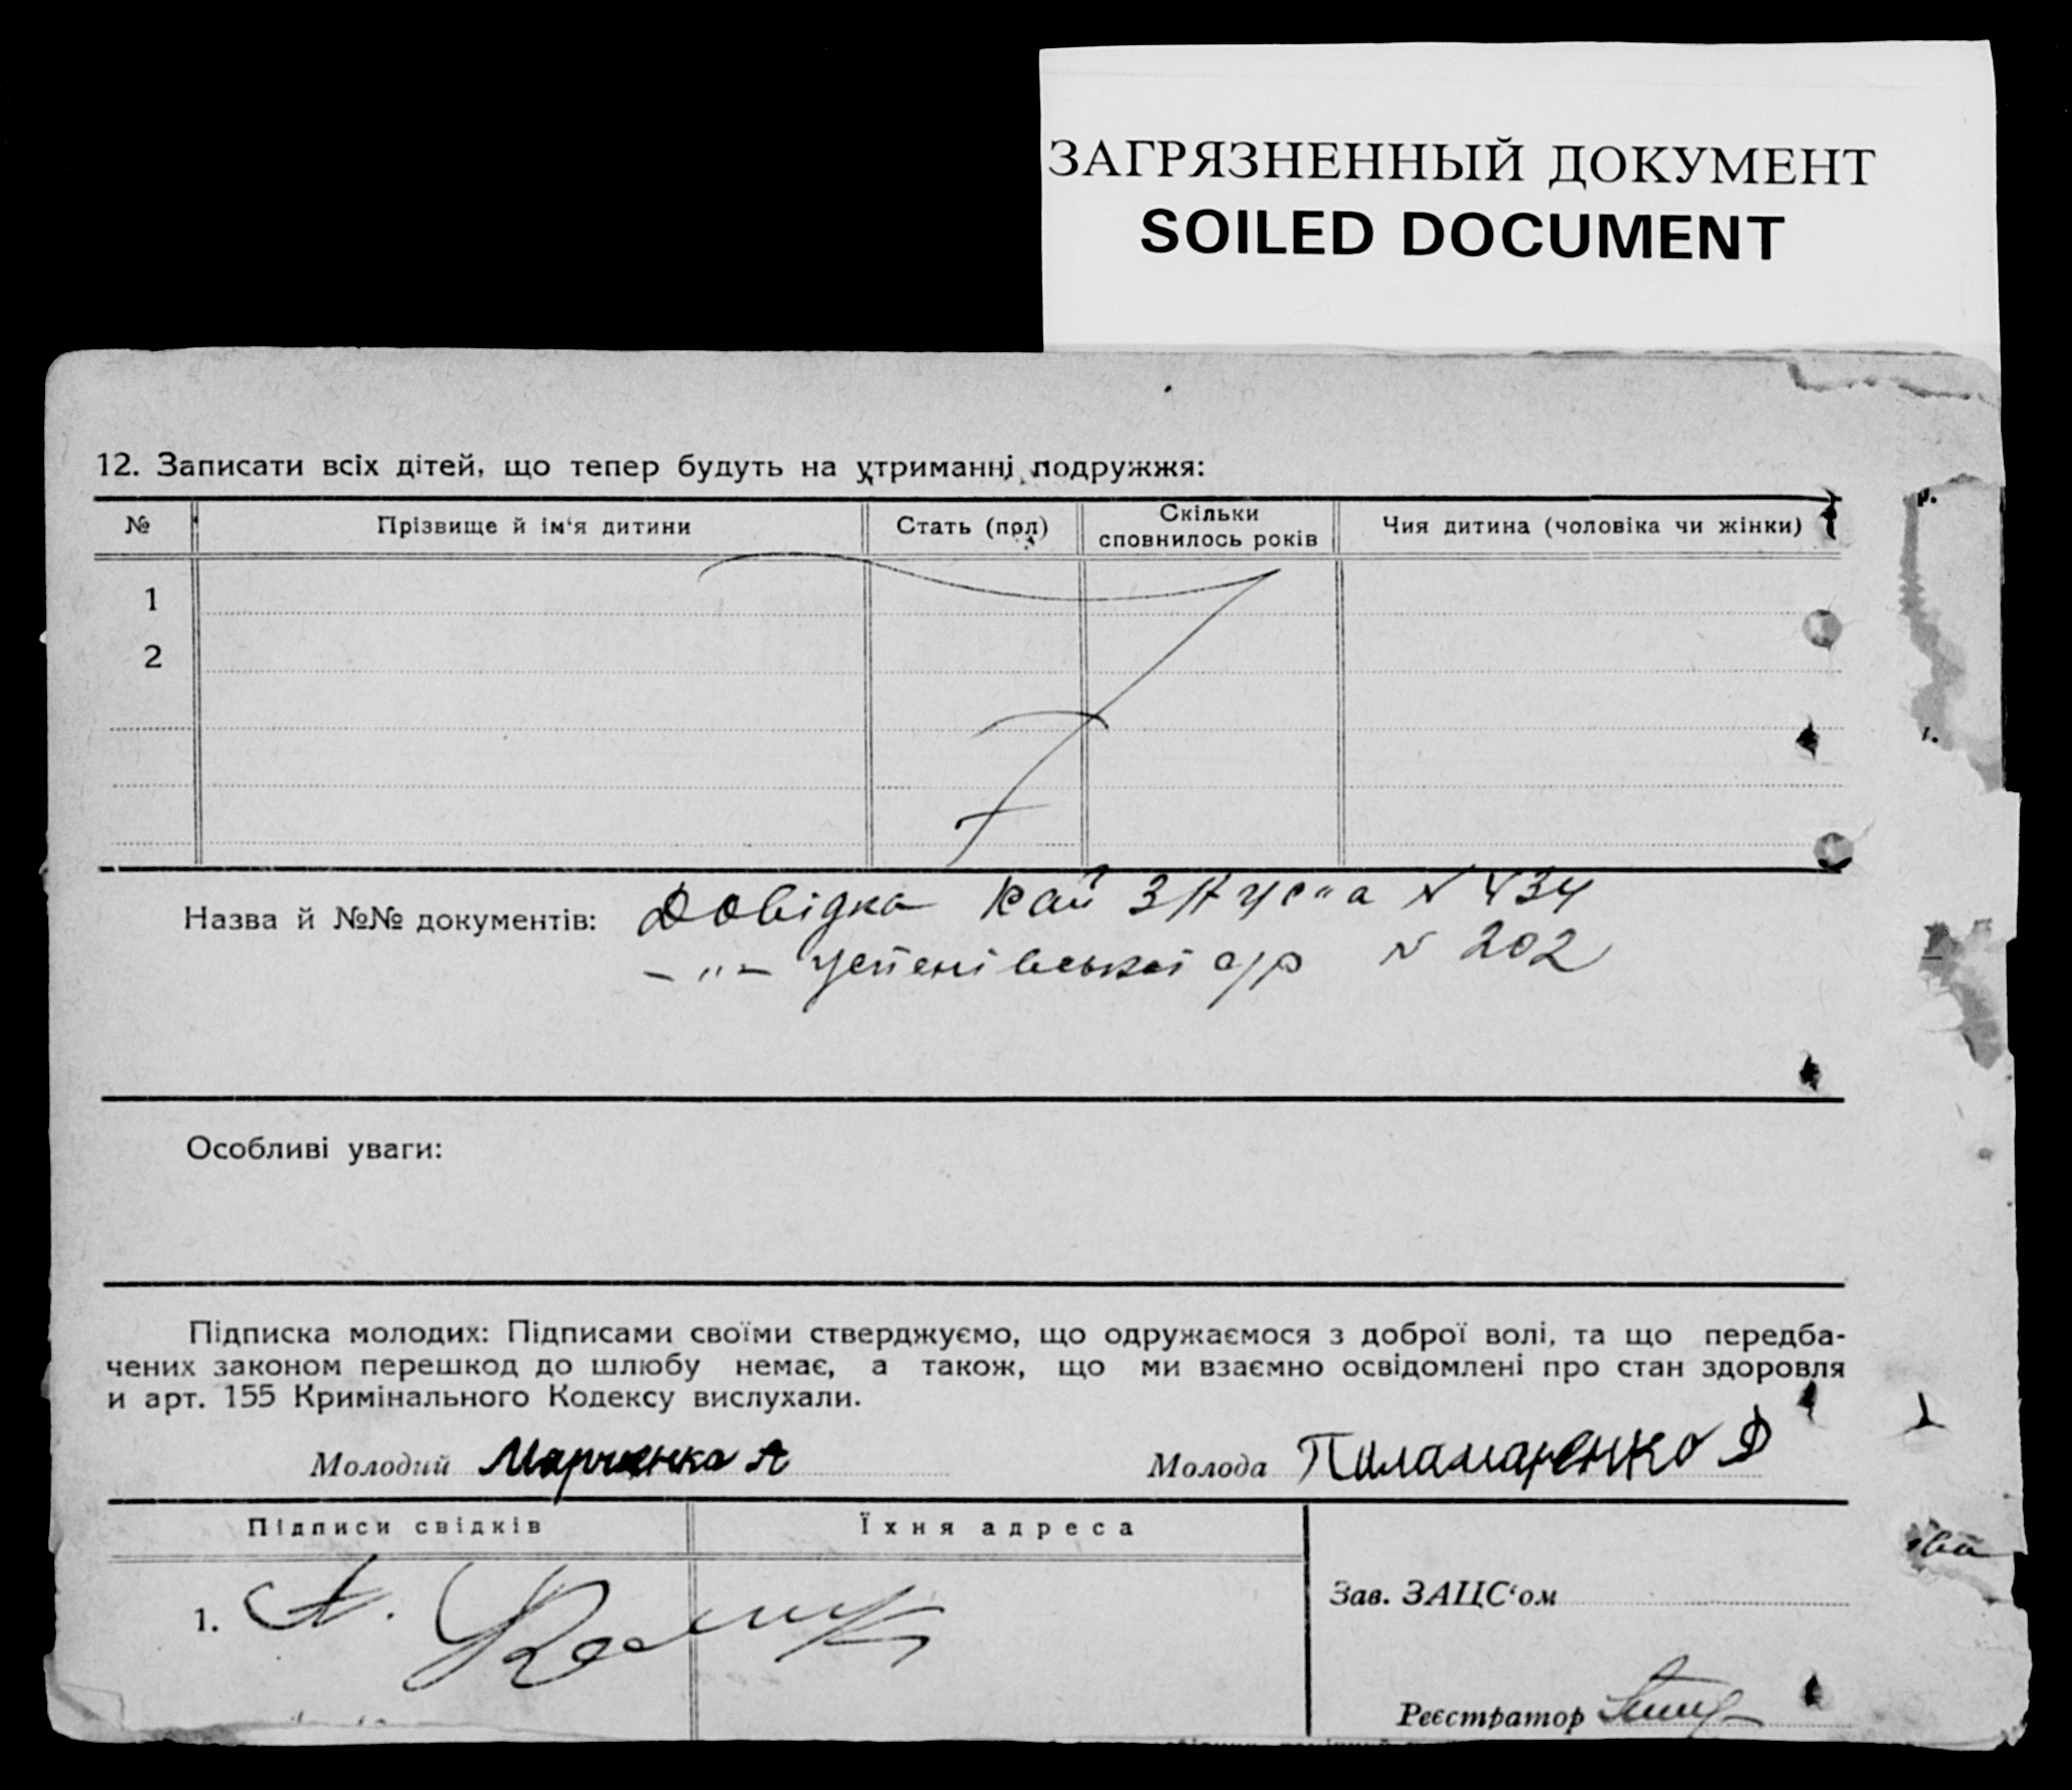 ЗАГРЯЗНЕННЫЙ ДОКУМЕНТ
SOILED DOCUMENT
12. Записати всіх дітей, що тепер будуть на утриманні подружжя:
№ Прізвище й ім‘я дитини Стать (пол) Скільки сповнилось років Чия дитина (чоловіка чи жінки)
1
2
Назва й №№ документів: Довідка № 434
-"- Успенівської с/р № 202
Особливі уваги:
Підписка молодих: Підписами своїми стверджуємо, що одружаємося з доброї волі, та що передба-
чених законом перешкод до шлюбу немає, а також, що ми взаємно освідомлені про стан здоровля
и арт. 155 Кримінального Кодексу вислухали.
Молодий Марченко А Молода Паламаренко Д
Підписи свідків Їхня адреса
1.
Зав. ЗАЦС‘ом
Реєстратор